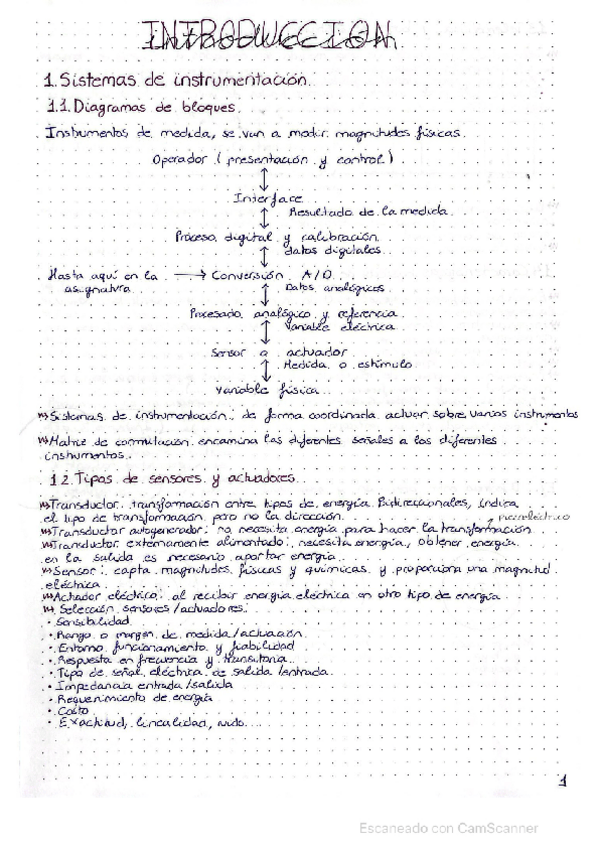 INTRODUCCION
1. Sistemas de instrumentación.
1.1. Diagramas de bloques.
Instrumentos de medida, se van a medir magnitudes físicas.
Operador (presentación y control)
Interface
Resultado de la medida
Proceso digital y calibración
datos digitales
Hasta aquí en la → Conversión A/D
asignatura
Datos analógicos
Procesado analógico y referencia
Variable eléctrica
Sensor o actuador
Medida o estímulo
Variable física
Sistemas de instrumentación: de forma coordinada actuar sobre varios instrumentos
Matriz de conmutación encamina las diferentes señales a los diferentes
instrumentos.
1.2. Tipos de sensores y actuadores.
Transductor: transformación entre tipos de energía. Bidireccionales, indica
el tipo de transformación pero no la dirección.
piezoeléctrico
Transductor autogenerador: no necesita energía para hacer la transformación
Transductor externamente alimentado: necesita energía, obtener energía
en la salida es necesario aportar energía.
Sensor: capta magnitudes físicas y químicas y proporciona una magnitud
eléctrica
Actuador eléctrico: al recibir energía eléctrica en otro tipo de energía
Selección sensores/actuadores:
· Sensibilidad
· Rango o margen de medida/actuación
· Entorno funcionamiento y fiabilidad
· Respuesta en frecuencia y transitoria
· Tipo de señal eléctrica de salida/entrada
· Impedancia entrada/salida
· Requerimiento de energía
· Costo
· Exactitud, linealidad, ruido...
1
Escaneado con CamScanner